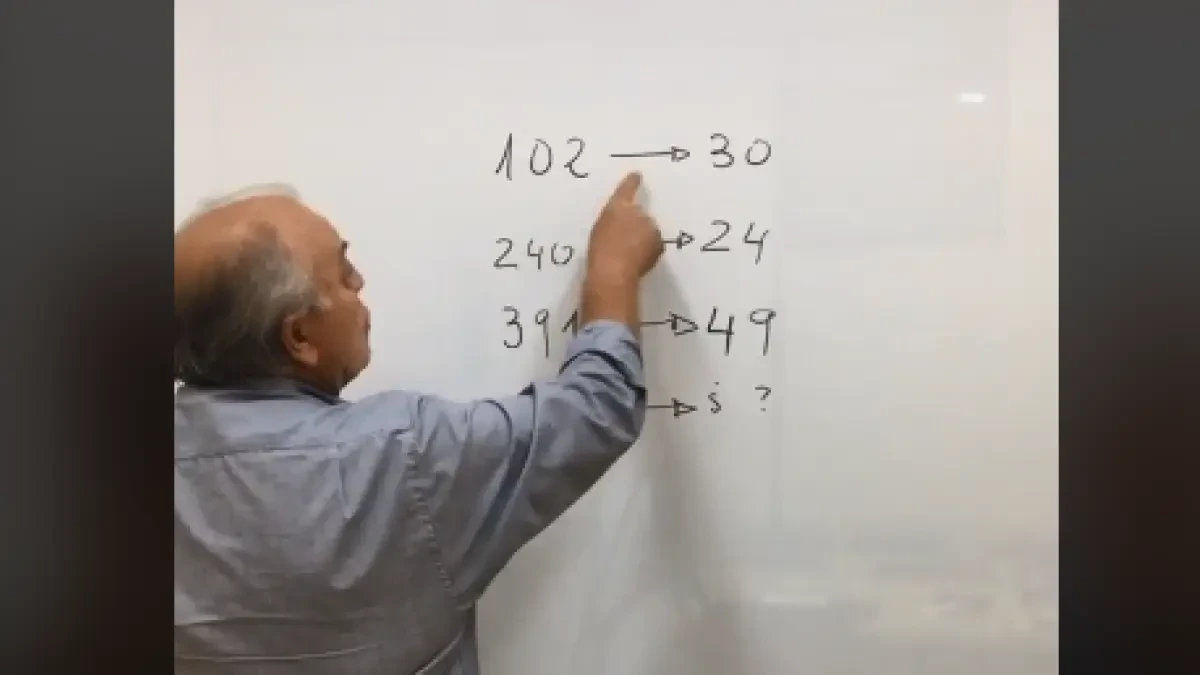 102 → 30
240 → 24
391 → 49
→ ¿ ?